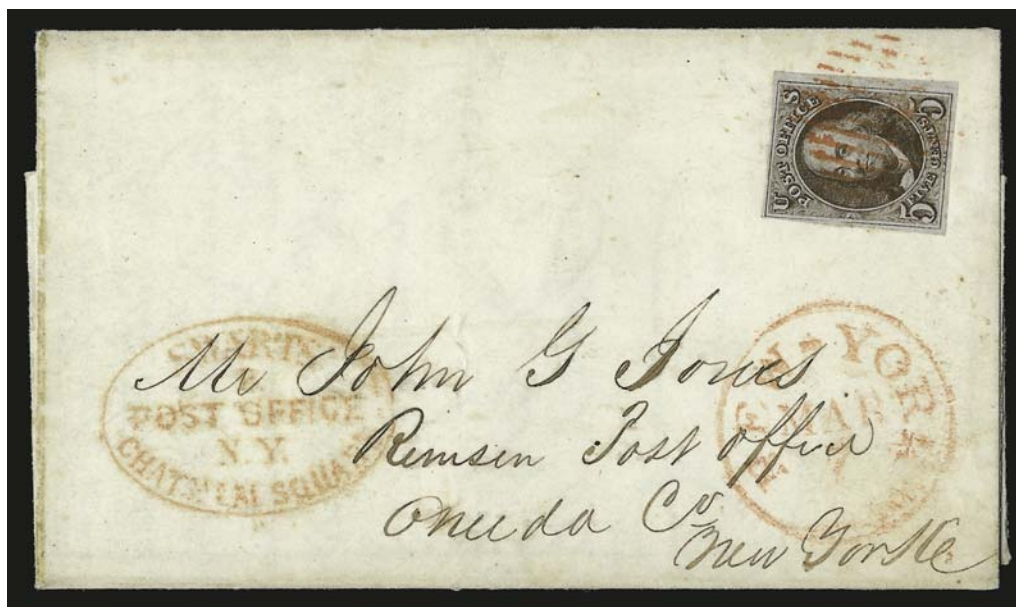 U POST OFFICE S
5 FIVE CENTS 5
SWARTS
POST OFFICE
N.Y.
CHATHAM SQUARE
NEW-YORK
MAR
7
Mr John G Jones
Remsen Post office
Oneida Co
New Yorke